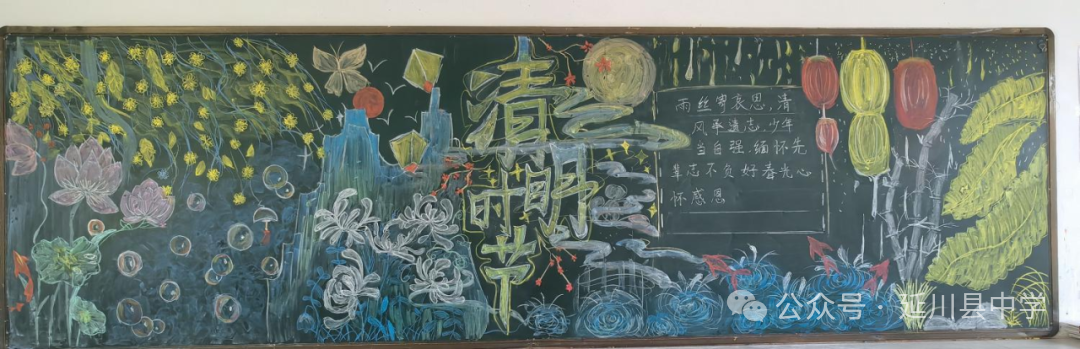 清明
时节
雨丝寄哀思，清
风承遗志，少年
当自强，缅怀先
辈志不负好春光心
怀感恩
公众号 · 延川县中学